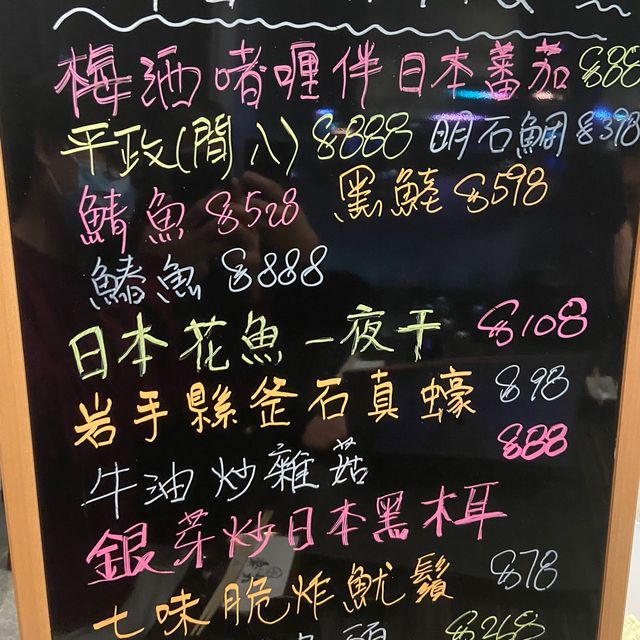 梅酒啫喱伴日本蕃茄 $88
平政(間八) $888 明石鯛 $398
鯖魚 $528 黑鯥 $598
鰆魚 $888
日本花魚一夜干 $108
岩手縣釜石真蠔 $98
牛油炒雜菇 $88
銀芽炒日本黑木耳
七味脆炸魷鬚 $78
$268